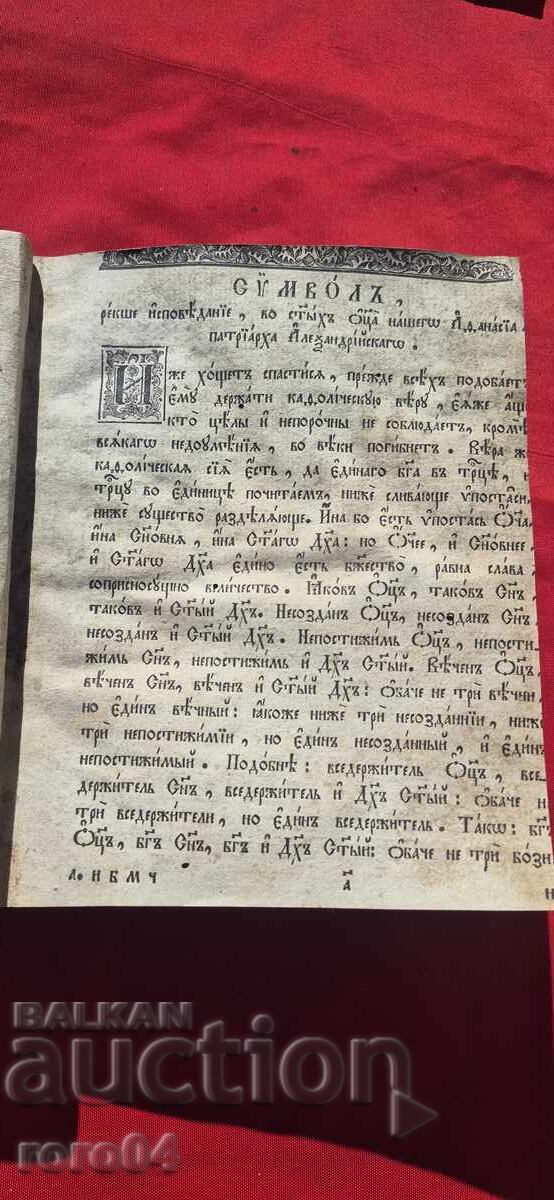 СѴМВО́ЛЪ,
ре́кше и҆сповѣ́данїе, во ст҃ы́хъ ѻ҆ц҃а̀ на́шегѡ А҆ѳана́сїа
патрїа́рха А҆леѯандрі́йскагѡ.
И҆́же хо́щетъ спасти́сѧ, пре́жде всѣ́хъ подоба́етъ
є҆мꙋ̀ держа́ти каѳоли́ческꙋю вѣ́рꙋ, є҆ѧ́же а҆́ще
кто̀ цѣ́лы и҆ непоро́чны не соблюда́етъ, кромѣ̀
всѧ́кагѡ недоꙋмѣ́нїѧ, во вѣ́ки поги́бнетъ. Вѣ́ра ж
каѳоли́ческаѧ сїѧ̀ є҆́сть, да є҆ди́наго бг҃а въ трⷪ҇цѣ, и҆
трⷪ҇цꙋ во є҆ди́ницѣ почита́емъ, нижѐ слива́юще ѵ҆поста́си
нижѐ сꙋщество̀ раздѣлѧ́юще. И҆́на бо є҆́сть ѵ҆поста́сь Ѻ҆́ч҃а,
и҆́на Сн҃о́внѧ, и҆́на Ст҃а́гѡ Дх҃а: но Ѻ҆́ч҃ее, и҆ Сн҃о́внее,
и҆ Ст҃а́гѡ Дх҃а є҆ди́но є҆́сть бж҃ество̀, ра́вна сла́ва
соприсносꙋ́щно вели́чество. Ꙗ҆ко́въ Ѻ҆ц҃ъ, тако́въ Сн҃ъ,
тако́въ и҆ Ст҃ы́й Дх҃ъ. Несозда́нъ Ѻ҆ц҃ъ, несозда́нъ Сн҃ъ
несозда́нъ и҆ Ст҃ы́й Дх҃ъ. Непостижи́мь Ѻ҆ц҃ъ, непости-
жи́мь Сн҃ъ, непостижи́мь и҆ Дх҃ъ Ст҃ы́й. Вѣ́ченъ Ѻ҆ц҃ъ,
вѣ́ченъ Сн҃ъ, вѣ́ченъ и҆ Ст҃ы́й Дх҃ъ: Ѻ҆ба́че не трѝ вѣ́чни,
но є҆ди́нъ вѣ́чный: ꙗ҆́коже нижѐ трѝ несозда́ннїи, ниж
трѝ непостижи́мїи, но є҆ди́нъ несозда́нный, и҆ є҆ди́нъ
непостижи́мый. Подо́бнѣ: вседержи́тель Ѻ҆ц҃ъ, все-
держи́тель Сн҃ъ, вседержи́тель и҆ Дх҃ъ Ст҃ы́й: Ѻ҆ба́че н
трѝ вседержи́тели, но є҆ди́нъ вседержи́тель. Та́кѡ: бг҃ъ
Ѻ҆ц҃ъ, бг҃ъ Сн҃ъ, бг҃ъ и҆ Дх҃ъ Ст҃ы́й: Ѻ҆ба́че не трѝ бо́зи
а. и б м ч
а҃
н
BALKAN
auction
roro04